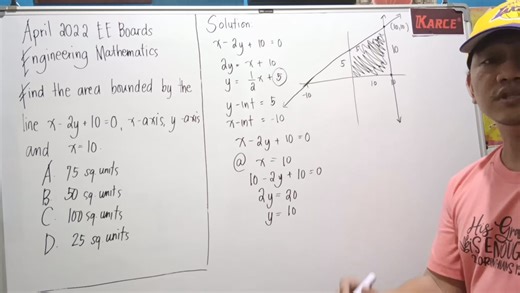 April 2022 EE Boards
Engineering Mathematics
Find the area bounded by the
line x - 2y + 10 = 0, x-axis, y-axis
and x = 10.
A. 75 sq units
B. 50 sq units
C. 100 sq units
D. 25 sq units
Solution
x - 2y + 10 = 0
2y = x + 10
y = 1/2 x + 5
y-int = 5
x-int = -10
x - 2y + 10 = 0
@ x = 10
10 - 2y + 10 = 0
2y = 20
y = 10
(10,10)
5
10
-10
10
KARCE
His Gra
IS ENOUG